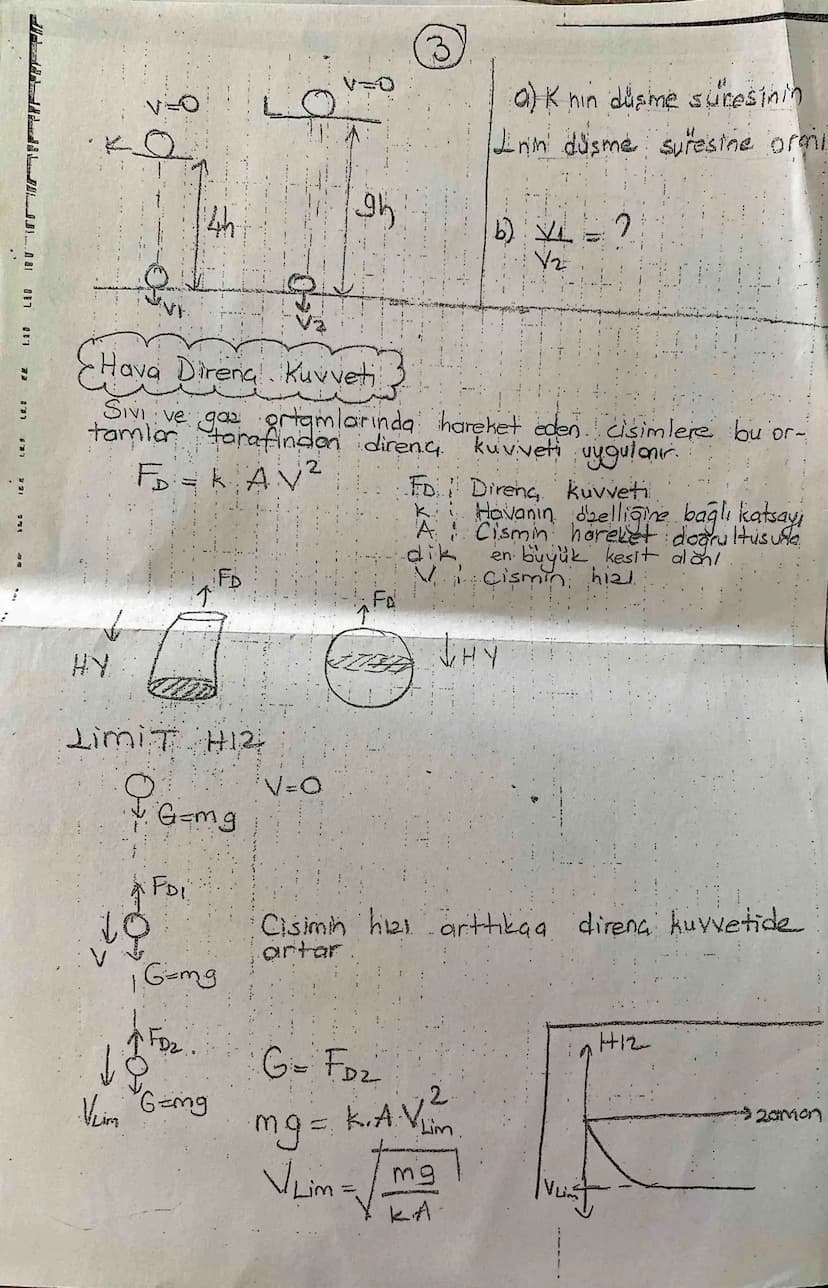 3
V=0
K
4h
V1
V=0
L
9h
V2
a) K nın düşme süresinin
L nin düşme süresine oranı
b) V1/V2 = ?
Hava Direnç Kuvveti
Sıvı ve gaz ortamlarında hareket eden cisimlere bu or-
tamlar tarafından direnç kuvveti uygulanır.
FD = k.AV²
FD : Direnç kuvveti
k : Havanın özelliğine bağlı katsayı
A : Cismin hareket doğrultusuna
dik en büyük kesit alanı
V : Cismin hızı
FD
HY
FD
HY
LimiT HIZ
V=0
G=mg
FD1
V
G=mg
Cisimin hızı arttıkça direnç kuvvetide
artar.
FD2
VLim
G=mg
G = FD2
mg = k.A.V²Lim
VLim = √mg/k.A
HIZ
zaman
VLim